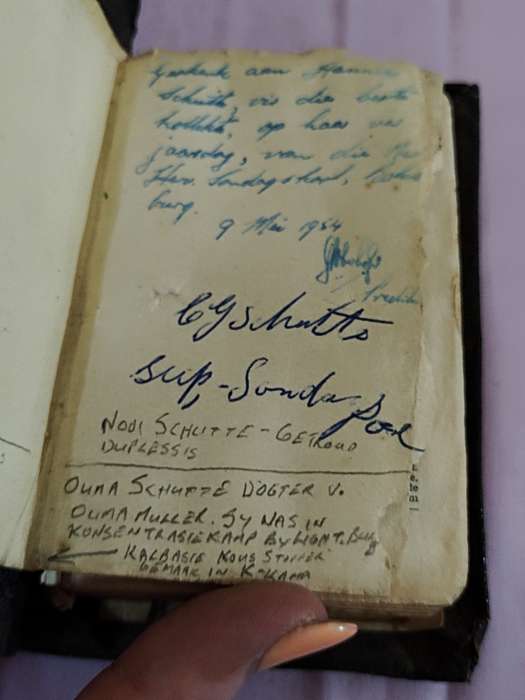 Geskenk aan Hannie
Schutte, vir die beste
kollekte, op haar ver
jaarsdag, van die Ne
Herv. Sondagskool,
burg.
9 Mei 1954
Predik
CG Schutte
Sup, - Sondagskool
NOOI SCHUTTE - GETROUD
DUPLESSIS
OUMA SCHUTTE DOGTER V.
OUMA MULLER. SY WAS IN
KONSENTRASIEKAMP BY
KALBASIE KOUS STOPPER
GEMAAK IN K-KAMP